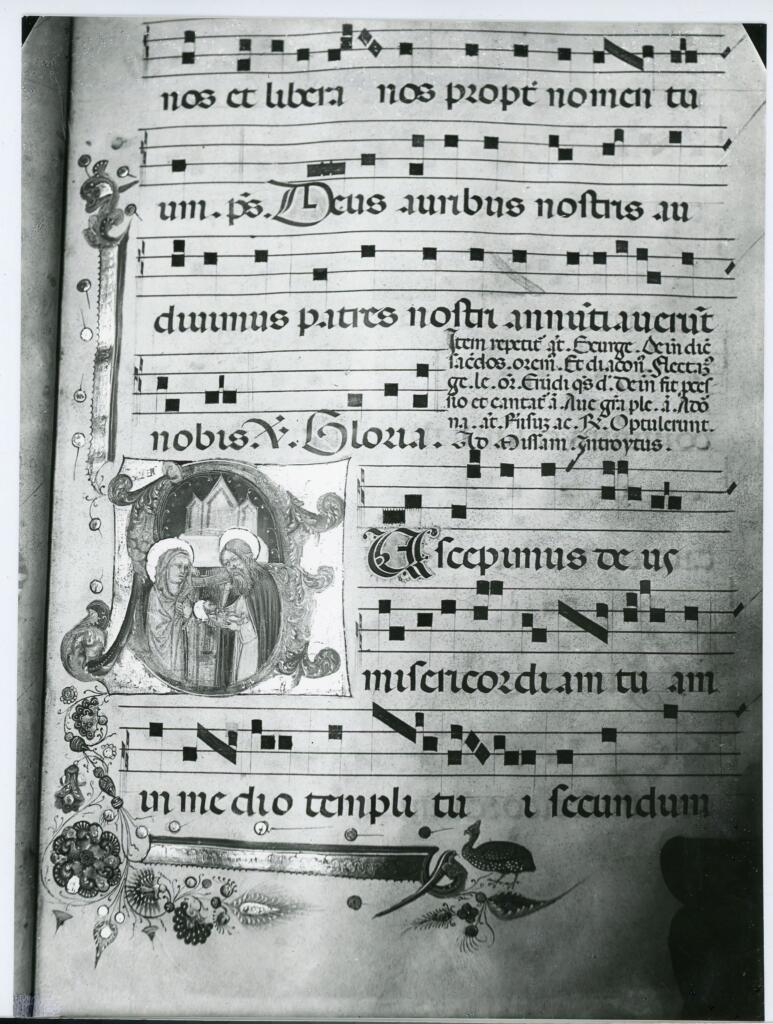 nos et libera nos propt̄ nomen tu
um. p̄s. Deus auribus nostris au
diuimus patres nostri annūtiauerūt
Item repetit̄ añ. Exurge. Dein diē
sac̄dos. orem̄. Et diacoñ. Flecta
ge. le. or̄. Exaudi q̄s d̄. Dein fit p̄ces
sio et cantat̄ ā. Aue gr̄a ple. ā. Ado
na. añ. R̄. Optulerunt.
nobis. V̄. Gloria. Ad Missam. Introytus.
Uscepimus de us
misericordi am tu am
in me dio templi tu i secundum